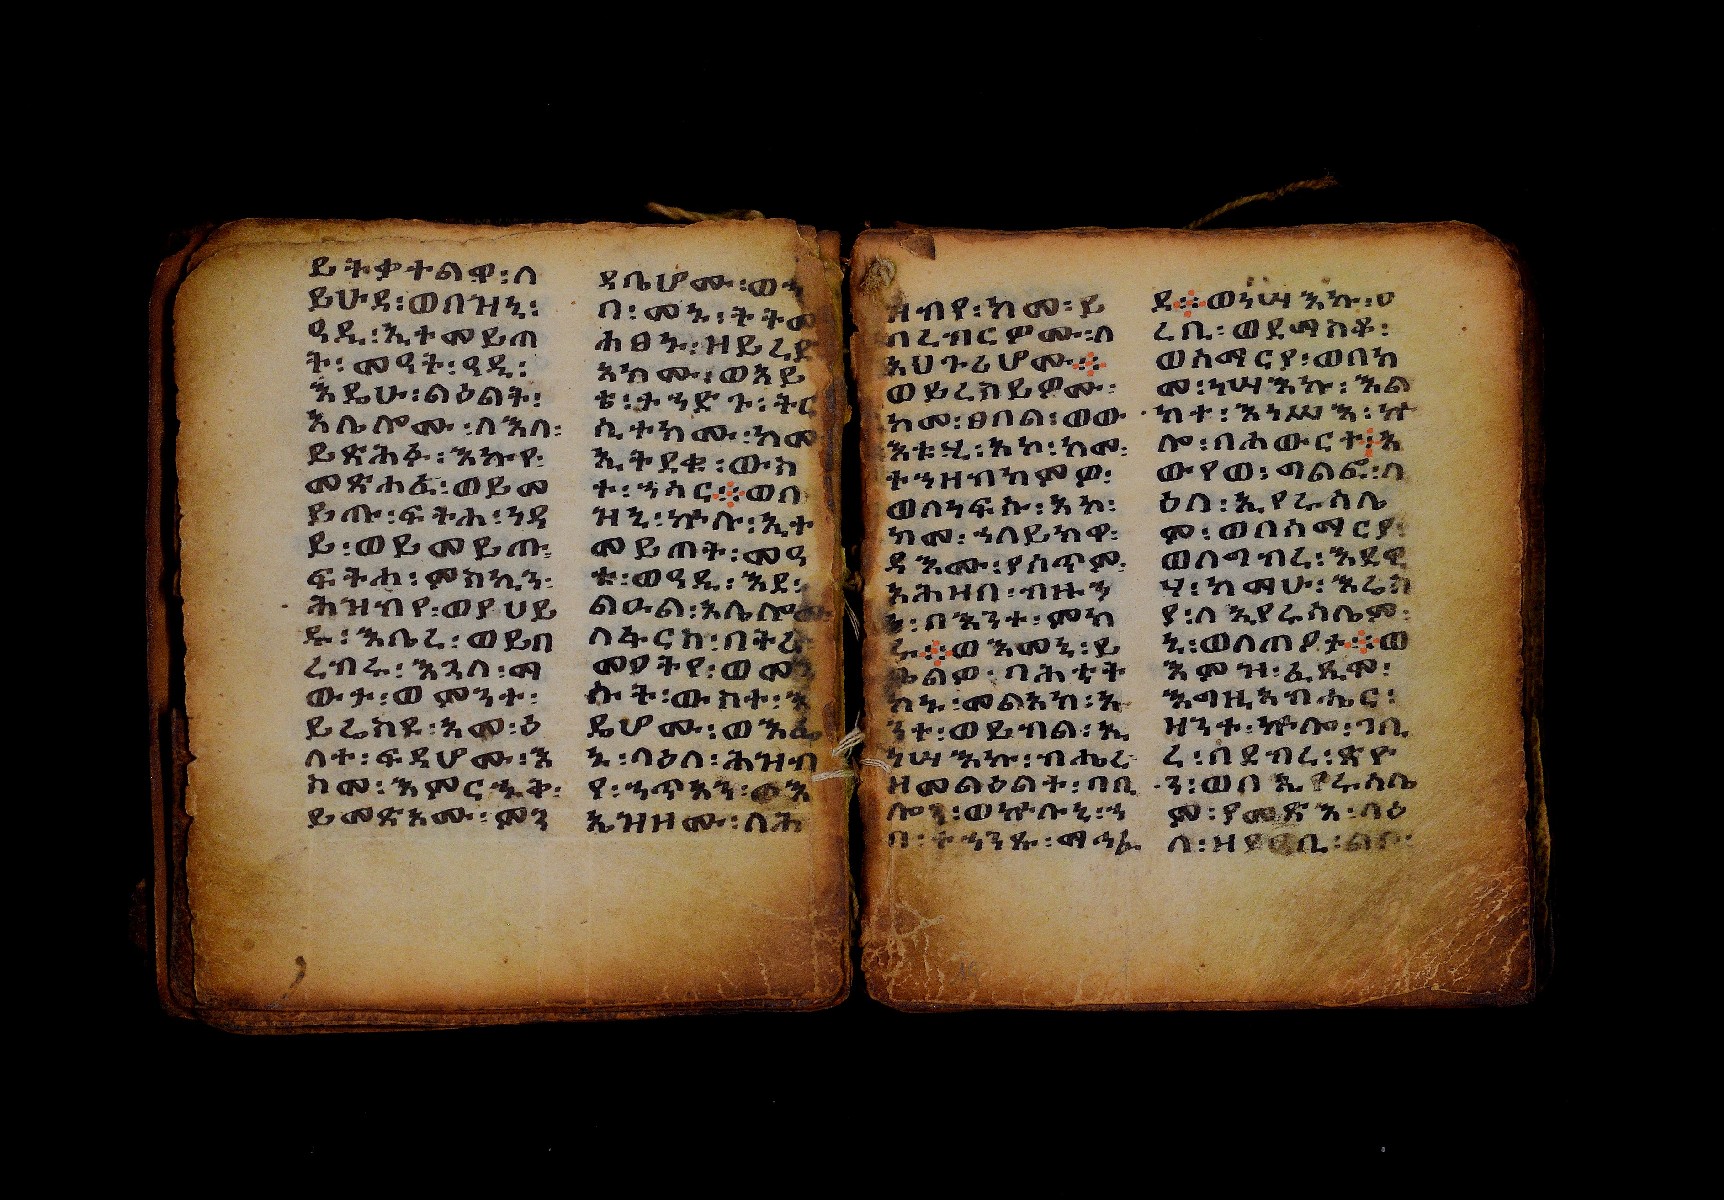 ይትቃተልዋ፡ለ
ይሁዳ፡ወበዝኒ፡
ዓዲ፡ኢተመይጠ
ት፡መዓት፡ዓዲ፡
እዴሁ፡ልዕልት፡
እሌሎሙ፡ለእለ፡
ይጽሕፉ፡እኩየ፡
መጽሐፈ፡ወይመ
ይጡ፡ፍትሐ፡ነዳ
ይ፡ወይመይጡ፡
ፍትሐ፡ምስኪን፡
ሕዝብየ፡ወያህይ
ዱ፡እቤረ፡ወይበ
ረብሩ፡እጓለ፡ማ
ውታ፡ወምንተ፡
ይሬስዩ፡አመ፡ዕ
ለተ፡ፍዳሆሙ፡እ
ስመ፡እምርኁቅ፡
ይመጽአሙ፡ምን
ዳቤሆሙ፡ወኀ
በ፡መኑ፡ትትመ
ሐፀኑ፡ዘይረድ
አክሙ፡ወአይ
ቴ፡ታኀድጉ፡ትር
ሲተክሙ፡ከመ
ኢትደቁ፡ውስ
ተ፡ኀሳር፨ወበ
ዝኒ፡ኵሉ፡ኢተ
መይጠት፡መዓ
ቱ፡ወዓዲ፡እደ፡
ልዑል፡አሌሎሙ
ለፋርስ፡በትረ
መዖትየ፡ወመን
ሱት፡ውስተ፡እ
ዴሆሙ፡ወእፌ
ኑ፡ላዕለ፡ሕዝብ
የ፡ኀጥአን፡ወእ
ኤዝዞሙ፡ለሕ
ዝብየ፡ከመ፡ይ
በረብርዎሙ፡ለ
አህጉሪሆሙ፨
ወይረስይዎሙ፡
ከመ፡ፀበል፡ወው
እቱሂ፡አኮ፡ከመ፡
ተኀዘብክምዎ፡
ወለነፍሱ፡አኮ፡
ከመ፡ኀለይክዋ፡
ዳእሙ፡ያስጥም፡
አሕዛበ፡ብዙኀ
በእንተ፡ምክ
ሩ፨ወእመኒ፡ይ
ቤልዎ፡ባሕቲት
ከኑ፡መልአክ፡አ
ንተ፡ወይብል፡ኢ
ነሣእኩ፡ብሔረ
ዘመልዕልት፡ባቢ
ሎን፡ወኵሉኒ፡ኀ
በ፡ተኀንጹ፡ማኅፈ
ደ፨ወነሣእኩ፡ዐ
ረቢ፡ወደማስቆ፡
ወሰማርያ፡ወበከ
መ፡ነሣእኩ፡እል
ክተ፡እነሥእ፡ኵ
ሎ፡በሐውርተ፡አ
ውየወ፡ግልፎ፡በ
ዕለ፡ኢየሩሳሌ
ም፡ወበሰማርያ፡
ወለግብረ፡እደዊ
ሃ፡ከማሁ፡እሬስ
ያ፡ለኢየሩሳሌም፡
ኒ፡ወለጠዖታ፨ወ
እምዝ፡ፈጺሞ፡
እግዚአብሔር፡
ዘንተ፡ኵሎ፡ገቢ
ረ፡በደብረ፡ጽዮ
ን፡ወበኢየሩሳሌ
ም፡ያመጽእ፡ላዕ
ለ፡ዘያዐቢ፡ልቡ፡